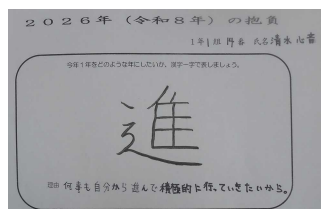 2026年（令和8年）の抱負
1年1組 氏名 清水心
今年1年をどのような年にしたいか、漢字一字で表しましょう。
進
理由 何事も自分から進んで積極的に行っていきたいから。